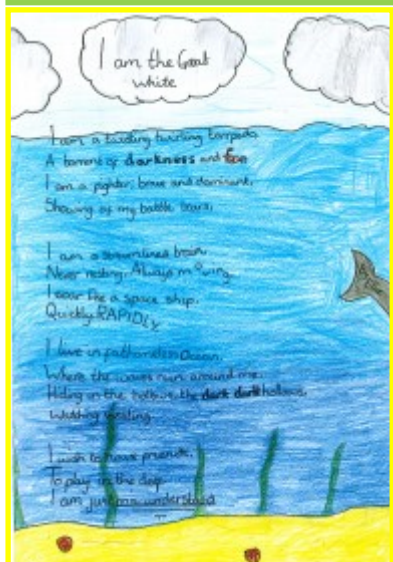 I am the Great
white
I am a twisting twirling torpedo,
A torrent of darkness and fear
I am a fighter, brave and dominant,
Showing of my battle scars,
I am a streamlined train,
Never resting. Always moving.
I soar like a space ship.
Quickly RAPIDLY,
I live in fathomless Ocean,
Where the waves run around me.
Hiding in the hollows, the dark dark hollows,
waiting
I wish to have friends,
To play in the deep
I am just misunderstood